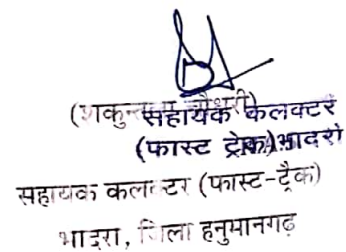 (शकुन्तला चौधरी)
सहायक कलक्टर
(फास्ट ट्रेक) भादरा
सहायक कलक्टर (फास्ट-ट्रैक)
भादरा, जिला हनुमानगढ़